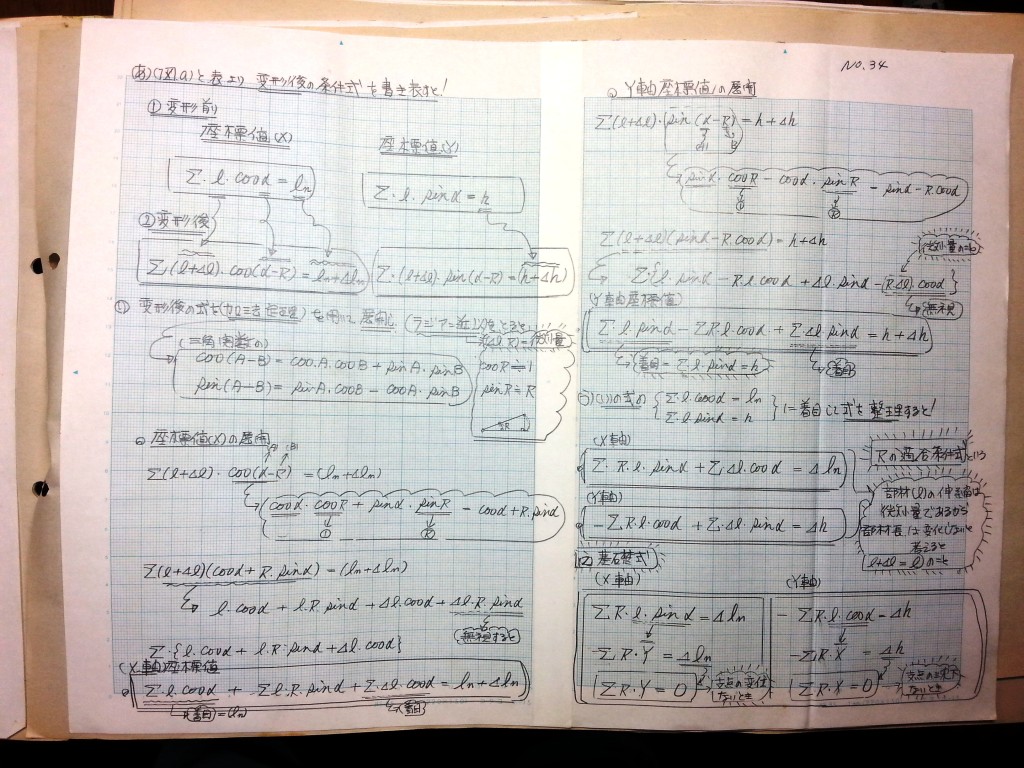 (あ)(7図.a)と表より 変形後の条件式を書き表すと!
① 変形前
座標値(X)
座標値(Y)
Σ・l・cosα = ln
Σ・l・sinα = h
② 変形後
Σ(l+Δl)・cos(α-R) = ln+Δln
Σ・(l+Δl)・sin(α-R) = (h+Δh)
変形後の式を(加法定理)を用いて展開し
(三角関数の)
cos(A-B) = cosA.cosB + sinA.sinB
sin(A-B) = sinA.cosB - cosA.sinB
cosR≒1
sinR≒R
座標値(X)の展開
(A) (B)
Σ(l+Δl)・cos(α-R) = (ln+Δln)
cosα・cosR + sinα・sinR - cosα+R.sinα
① Ⓡ
Σ(l+Δl)(cosα+R.sinα) = (ln+Δln)
l.cosα + l.R.sinα + Δl.cosα + Δl.R.sinα
無視すると
Σ・{l.cosα + l.R.sinα + Δl.cosα}
(X軸座標値
Σ.l.cosα + Σl.R.sinα + Σ.Δl.cosα = ln+Δln
(着目)=(ln)
(着目)
NO.34
Y軸座標値の展開
Σ(l+Δl)・sin(α-R) = h+Δh
A B
sinα・cosR - cosα・sinR - sinα-R.cosα
① Ⓡ
Σ(l+Δl)(sinα-R.cosα) = h+Δh
微小量の為
Σ{l.sinα - R.l.cosα + Δl.sinα - (R.Δl).cosα}
無視
(Y軸座標値)
Σ.l.sinα - ΣR.l.cosα + ΣΔl.sinα = h+Δh
着目=Σl.sinα=h
着目
う)(い)の式の {Σ.l.cosα = ln
Σ.l.sinα = h} に着目して式を整理すると!
(X軸)
Σ・R.l.sinα + Σ.Δl.cosα = Δln
Rの適合条件式という
(Y軸)
-ΣR.l.cosα + Σ.Δl.sinα = Δh
部材(l)の伸縮量は
微小量であるから
部材長は変化しないと
考えると
l+Δl=l)の為
(2) 基石整式
(X軸)
(Y軸)
ΣR.l.sinα = Δln
-ΣR.l.cosα = Δh
-ΣR・Y = Δln
-ΣR・X = Δh
ΣR・Y = 0
支点の変位
ないとき
ΣR.X = 0
ないとき